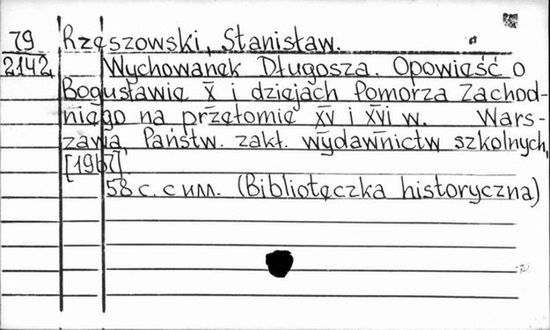 79
2142
Rzeszowski, Stanisław.
Wychowanek Długosza. Opowieść o
Bogusławie X i dziejach Pomorza Zachod-
niego na przełomie XV i XVI w. Wars-
zawa, Państw. zakł. wydawnictw szkolnych,
[1967]
58 с. с илл. (Biblioteczka historyczna)